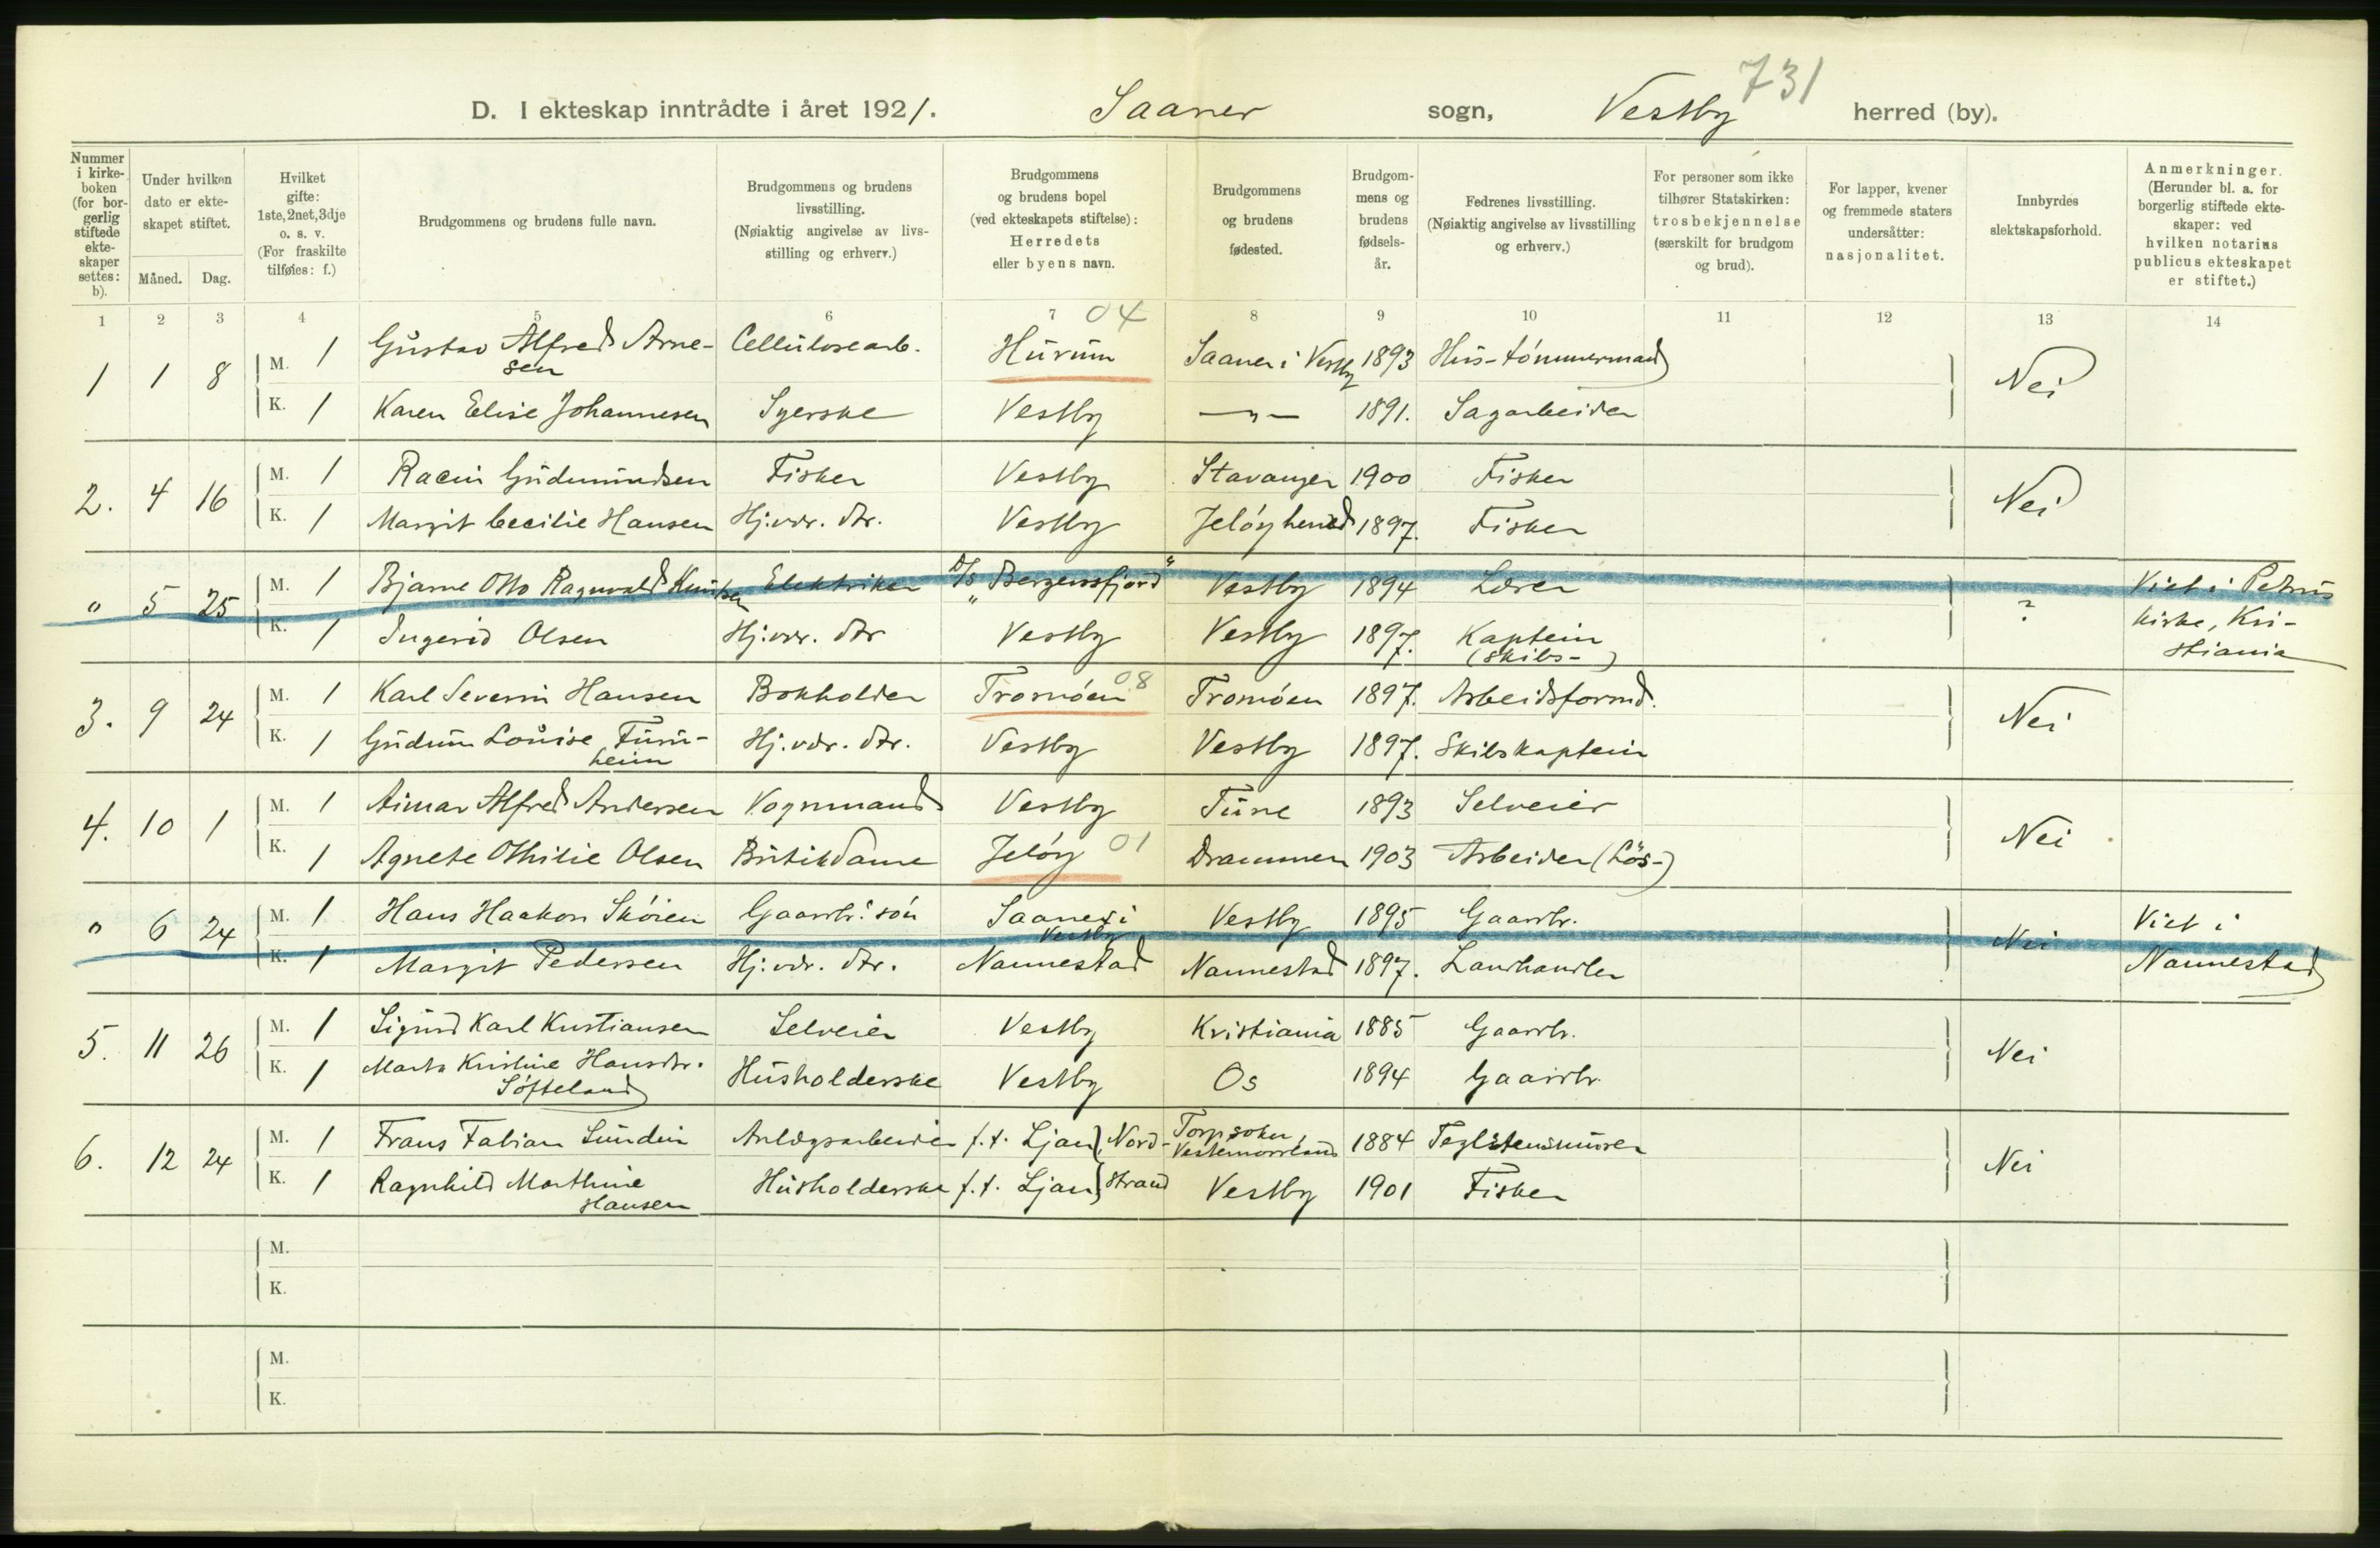 731
D. I ekteskap inntrådte i året 1921. Saaner sogn, Vestby herred (by).
Nummer i kirkeboken (for borgerlig stiftede ekteskaper settes: b).
Under hvilken dato er ekteskapet stiftet.
Måned. Dag.
Hvilket gifte: 1ste, 2net, 3dje o. s. v. (For fraskilte tilføies: f.)
Brudgommens og brudens fulle navn.
Brudgommens og brudens livsstilling. (Nøiaktig angivelse av livsstilling og erhverv.)
Brudgommens og brudens bopel (ved ekteskapets stiftelse): Herredets eller byens navn.
Brudgommens og brudens fødested.
Brudgommens og brudens fødselsår.
Fedrenes livsstilling. (Nøiaktig angivelse av livsstilling og erhverv.)
For personer som ikke tilhører Statskirken: trosbekjennelse (særskilt for brudgom og brud).
For lapper, kvener og fremmede staters undersåtter: nasjonalitet.
Innbyrdes slektskapsforhold.
Anmerkninger. (Herunder bl. a. for borgerlig stiftede ekteskaper: ved hvilken notarius publicus ekteskapet er stiftet.)
1 2 3 4 5 6 7 8 9 10 11 12 13 14
04
1 1 8 M. 1 Gustav Alfred Arnesen Cellulosearb. Hurum Saaner i Vestby 1893 Hus-tömmermand Nei
K. 1 Karen Elise Johannesen Syerske Vestby —"— 1891. Sagarbeider
2. 4 16 M. 1 Racin Gudmundsen Fisker Vestby Stavanger 1900 Fisker Nei
K. 1 Margit Cecilie Hansen Hj.vær. dtr. Vestby Jelöy herred 1897. Fisker
" 5 25 M. 1 Bjarne Otto Ragnvald Knutsen Elektriker D/S "Bergensfjord" Vestby 1894 Lærer ? Viet i Petrus kirke, Kristiania
K. 1 Ingerid Olsen Hj.vær. dtr Vestby Vestby 1897. Kaptein (Skibs-)
3. 9 24 M. 1 Karl Severin Hansen Bokholder Tromöen 08 Tromöen 1897. Arbeidsformd. Nei
K. 1 Gudrun Louise Furuheim Hj.vær. dtr. Vestby Vestby 1897. Skibskaptein
4. 10 1 M. 1 Aimar Alfred Andersen Vognmand Vestby Tune 1893 Selveier Nei
K. 1 Agnete Othilie Olsen Butikdame Jelöy 01 Drammen 1903 Arbeider (Lös-)
" 6 24 M. 1 Hans Haakon Sköien Gaardbr. sön Saaner i Vestby Vestby 1895 Gaardbr. Nei Viet i Nannestad
K. 1 Margit Pedersen Hj.vær. dtr. Nannestad Nannestad 1897. Landhandler
5. 11 26 M. 1 Sigurd Karl Kristiansen Selveier Vestby Kristiania 1885 Gaardbr. Nei
K. 1 Marta Kristine Hansdtr. Söfteland Husholderske Vestby Os 1894 Gaardbr.
6. 12 24 M. 1 Frans Fabian Sundin Anlægsarbeider f.t. Ljan (Nordstrand Torpsoken, Vesternorrland 1884 Teglstensmurer Nei
K. 1 Ragnhild Marthine Hansen Husholderske f.t. Ljan Vestby 1901 Fisker
M.
K.
M.
K.